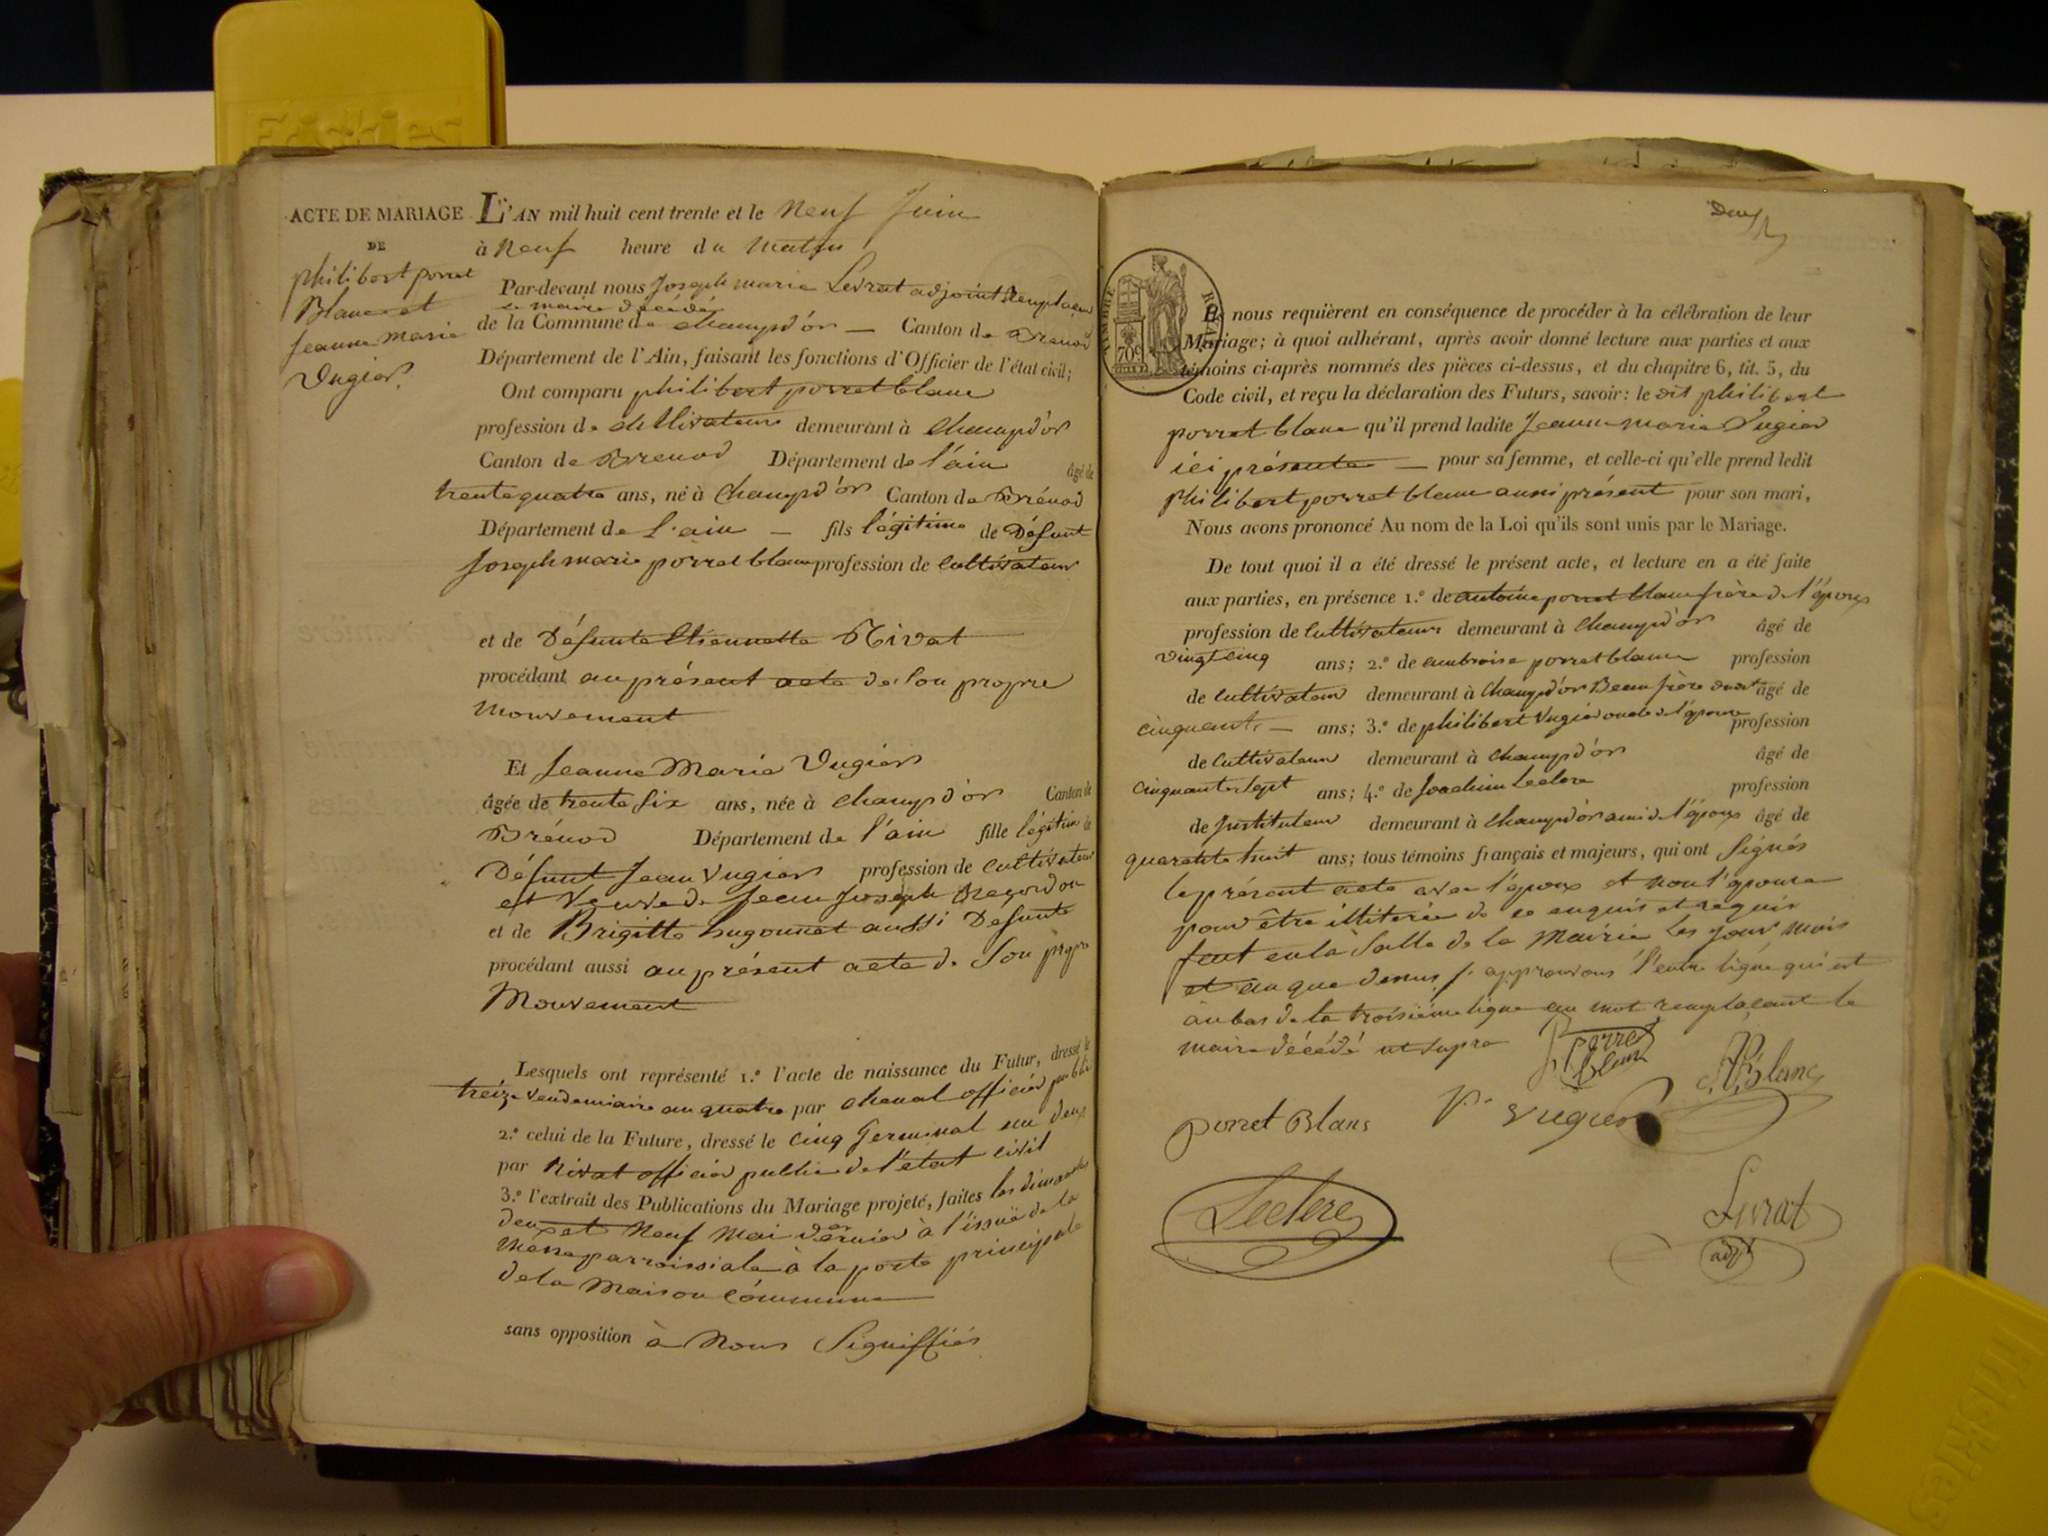 ACTE DE MARIAGE
DE
philibert porret
Blanc et
Jeanne Marie
Vugier.
L'AN mil huit cent trente et le Neuf Juin
à Neuf heure du Matin
Par-devant nous Joseph marie Levrat adjoint Remplaçant
le maire décédé
de la Commune de Champd'or — Canton de Brenod
Département de l'Ain, faisant les fonctions d'Officier de l'état civil;
Ont comparu philibert porret blanc
profession de Cultivateur demeurant à Champd'or
Canton de Brenod Département de l'ain âgé de
trente quatre ans, né à Champd'or Canton de Brénod
Département de l'ain — fils légitime de Défunt
Joseph marie porret blanc profession de Cultivateur
et de Défunte Etiennette Nivat
procédant au présent acte de Son propre
Mouvement
Et Jeanne Marie Vugier
âgée de trente Six ans, née à Champd'or Canton de
Brénod Département de l'ain fille légitime de
Défunt Jean Vugier profession de cultivateur
et Veuve de Jean Joseph
et de Brigitte hugonnet aussi Defunte
procédant aussi au présent acte de Son propre
Mouvement
Lesquels ont représenté 1.º l'acte de naissance du Futur, dressé le
treize Vendemiaire an quatre par Chenal officier public
2.º celui de la Future, dressé le cinq Germinal an deux
par Nivat officier public de l'état civil
3.º l'extrait des Publications du Mariage projeté, faites les dimanches
deux et Neuf Mai dernier à l'issuë de la
Messe parroissiale à la porte principale
de la Maison Commune
sans opposition à Nous Signiffiés
Deux
TIMBRE ROYAL
70c
Et nous requièrent en conséquence de procéder à la célébration de leur
Mariage; à quoi adhérant, après avoir donné lecture aux parties et aux
témoins ci-après nommés des pièces ci-dessus, et du chapitre 6, tit. 5, du
Code civil, et reçu la déclaration des Futurs, savoir: le dit philibert
porret blanc qu'il prend ladite Jeanne marie Vugier
ici présente — pour sa femme, et celle-ci qu'elle prend ledit
philibert porret blanc aussi présent pour son mari,
Nous avons prononcé Au nom de la Loi qu'ils sont unis par le Mariage.
De tout quoi il a été dressé le présent acte, et lecture en a été faite
aux parties, en présence 1.º de antoine porret blanc frère de l'époux
profession de Cultivateur demeurant à Champd'or âgé de
vingt cinq ans; 2.º de ambroise porret blanc profession
de Cultivateur demeurant à Champd'or Beau frère âgé de
cinquante — ans; 3.º de philibert Vugier oncle de l'épouse profession
de Cultivateur demeurant à Champd'or âgé de
cinquante Sept ans; 4.º de Joachim Leclerc profession
de Instituteur demeurant à Champd'or ami de l'époux âgé de
quarante huit ans; tous témoins français et majeurs, qui ont Signés
le présent acte avec l'époux et non l'épouse
pour être illiterée de ce enquis et requis
fait en la Salle de la Mairie les jour mois
et an que dessus /. approuvons l'entre ligne qui est
au bas de la troisième ligne au mot remplaçant le
maire décédé ut supra
Porret
blanc
Blanc
porret Blanc
Vugier
Leclerc
Livrat
adjt